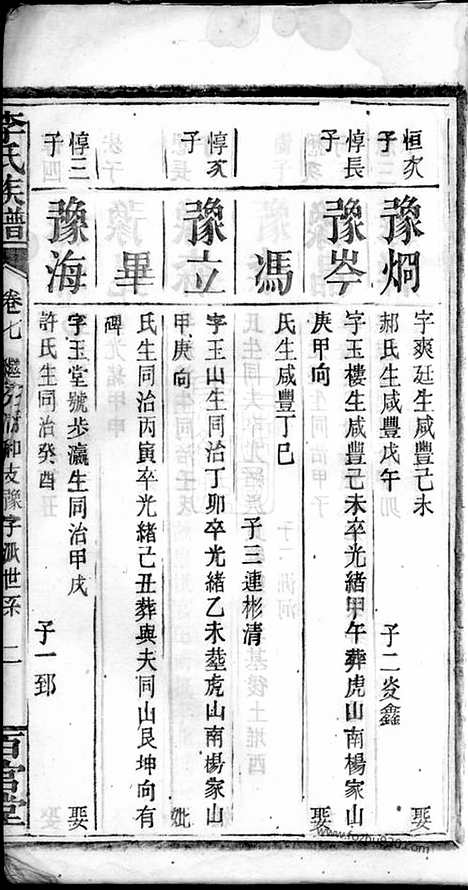 恒次子
豫炯
字爽廷生咸豐己未
娶
郝氏生咸豐戊午
子二炎鑫
惇長子
豫岑
字玉樓生咸豐己未卒光緒甲午葬虎山南楊家山
庚甲向
娶
馮
氏生咸豐丁巳
子三連彬清
惇次子
豫立
字玉山生同治丁卯卒光緒乙未塟虎山南楊家山
甲庚向
妣
畢
氏生同治丙寅卒光緒己丑葬與夫同山艮坤向有
碑
惇三子
豫海
字玉堂號步瀛生同治甲戌
娶
許氏生同治癸酉
子一郅
李氏族譜
卷七
和支豫字派世系
二
百宮堂
www.fozhu920.com